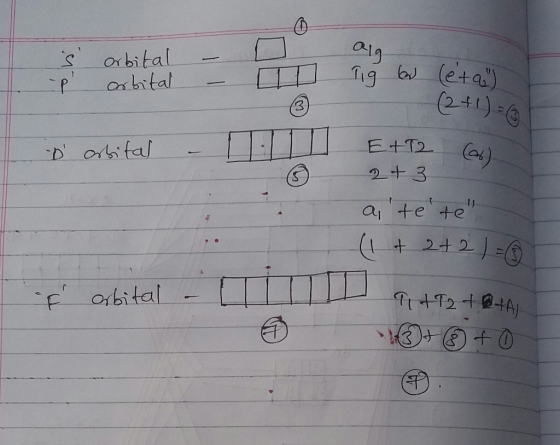 ①
's' orbital – a1g
'P' orbital – T1g (or) (e'+a2'')
③ (2+1) = ③
'D' orbital – E+T2 (or)
⑤ 2+3
a1'+e'+e''
(1+2+2) = ⑤
'F' orbital – T1+T2+ +A1
⑦ ③+③+①
⑦.